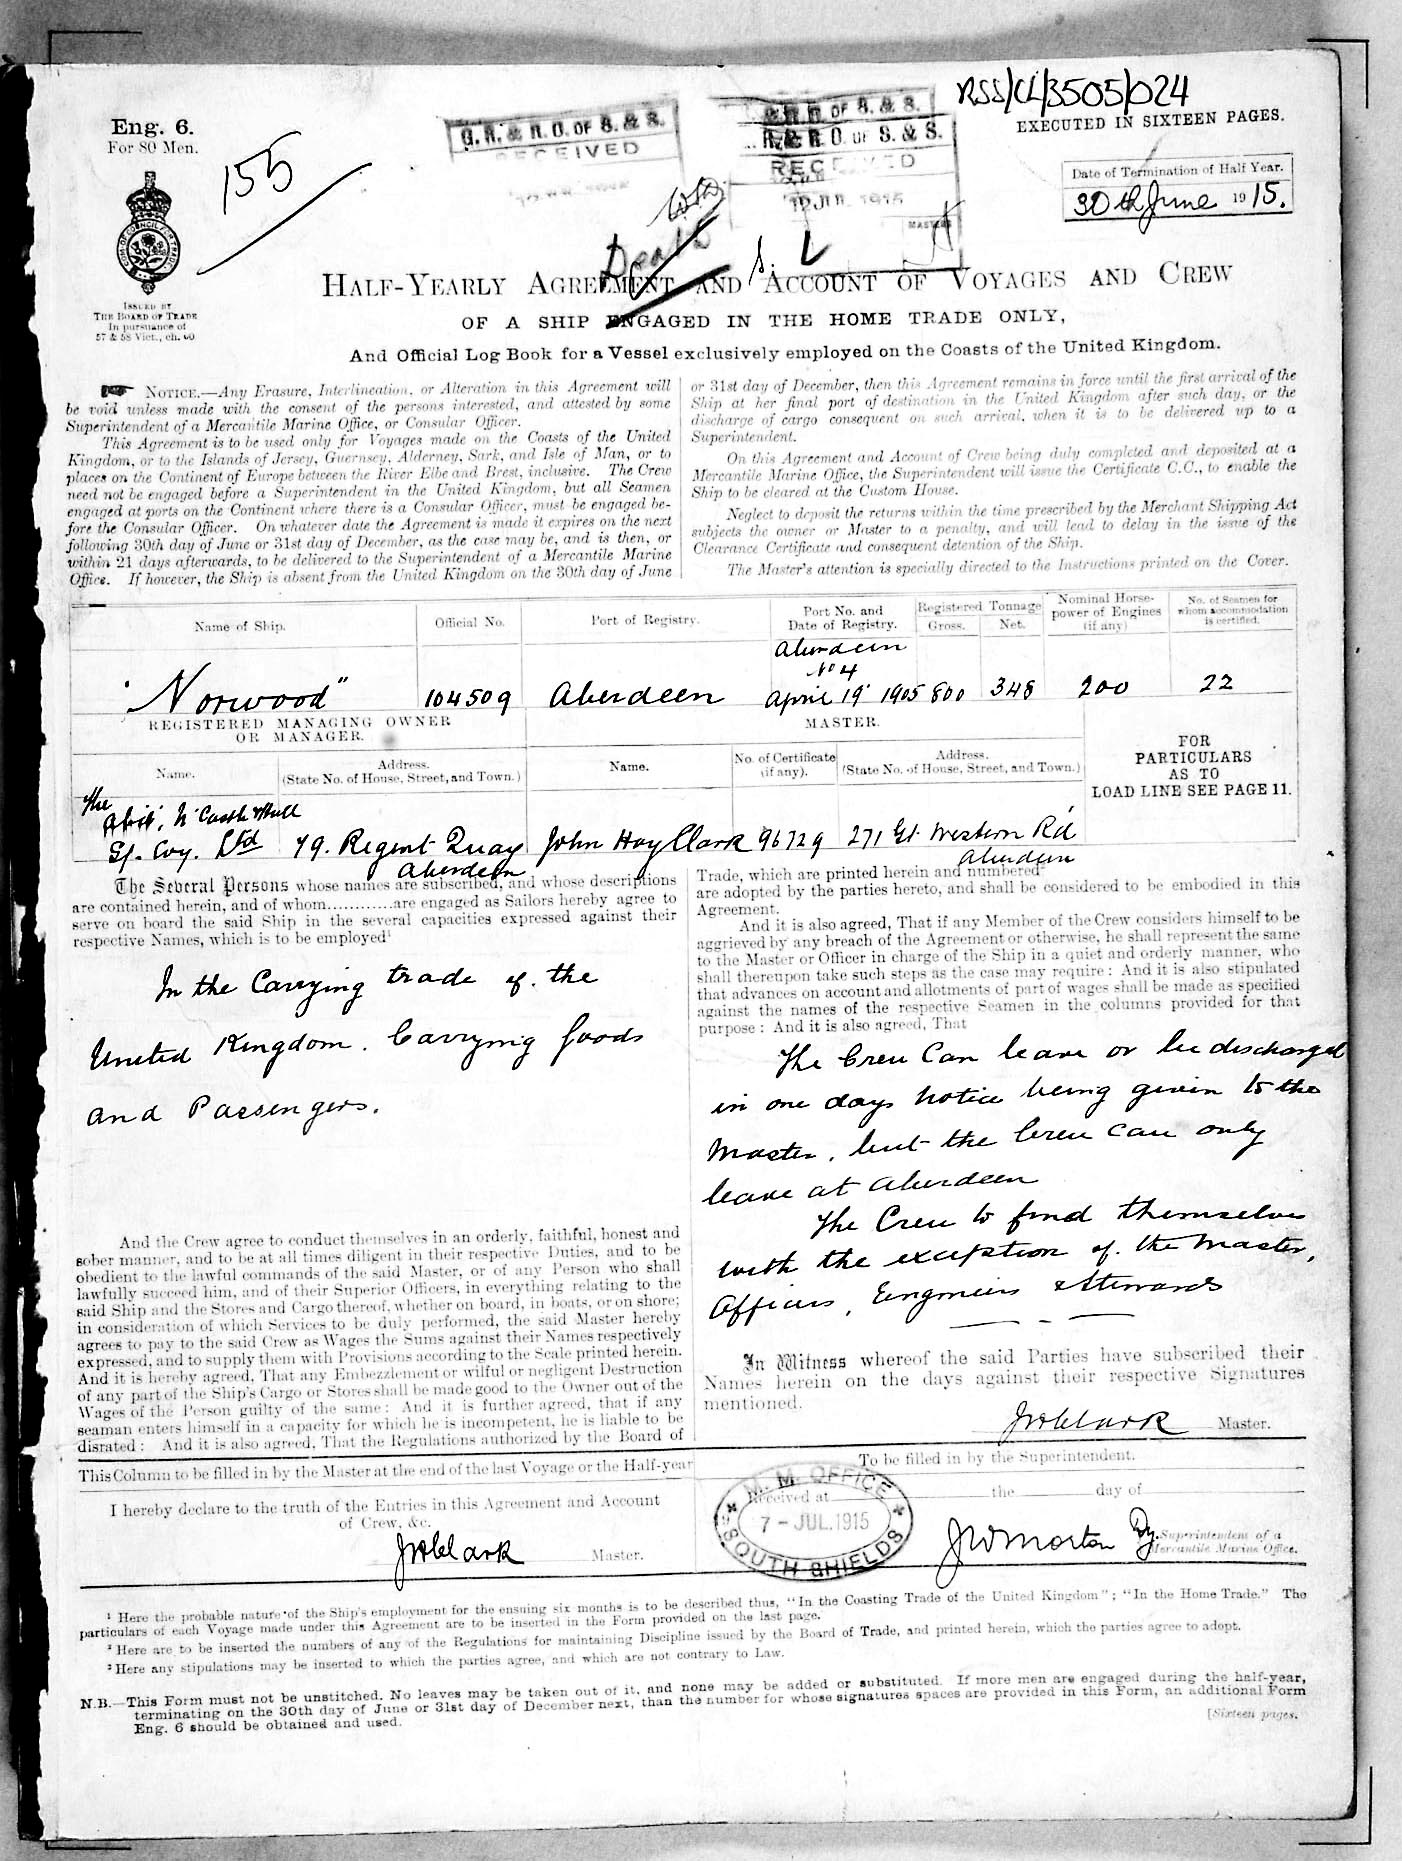 RSS/CL/3505/024
EXECUTED IN SIXTEEN PAGES.
Eng. 6.
For 80 Men.
155
G. R. & R. O. OF S. & S.
RECEIVED
R. O. OF S. & S.
R. & R. O. OF S. & S.
RECEIVED
1915
MASTERS
Date of Termination of Half Year.
30th June 1915.
Deals
ISSUED BY
THE BOARD OF TRADE
In pursuance of
57 & 58 Vict., ch. 60
HALF-YEARLY AGREEMENT AND ACCOUNT OF VOYAGES AND CREW
OF A SHIP ENGAGED IN THE HOME TRADE ONLY,
And Official Log Book for a Vessel exclusively employed on the Coasts of the United Kingdom.
NOTICE.—Any Erasure, Interlineation, or Alteration in this Agreement will
be void unless made with the consent of the persons interested, and attested by some
Superintendent of a Mercantile Marine Office, or Consular Officer.
This Agreement is to be used only for Voyages made on the Coasts of the United
Kingdom, or to the Islands of Jersey, Guernsey, Alderney, Sark, and Isle of Man, or to
places on the Continent of Europe between the River Elbe and Brest, inclusive. The Crew
need not be engaged before a Superintendent in the United Kingdom, but all Seamen
engaged at ports on the Continent where there is a Consular Officer, must be engaged be-
fore the Consular Officer. On whatever date the Agreement is made it expires on the next
following 30th day of June or 31st day of December, as the case may be, and is then, or
within 21 days afterwards, to be delivered to the Superintendent of a Mercantile Marine
Office. If however, the Ship is absent from the United Kingdom on the 30th day of June
or 31st day of December, then this Agreement remains in force until the first arrival of the
Ship at her final port of destination in the United Kingdom after such day, or the
discharge of cargo consequent on such arrival, when it is to be delivered up to a
Superintendent.
On this Agreement and Account of Crew being duly completed and deposited at a
Mercantile Marine Office, the Superintendent will issue the Certificate C.C., to enable the
Ship to be cleared at the Custom House.
Neglect to deposit the returns within the time prescribed by the Merchant Shipping Act
subjects the owner or Master to a penalty, and will lead to delay in the issue of the
Clearance Certificate and consequent detention of the Ship.
The Master's attention is specially directed to the Instructions printed on the Cover.
Name of Ship.
Official No.
Port of Registry.
Port No. and
Date of Registry.
Registered Tonnage
Gross.
Net.
Nominal Horse-
power of Engines
(if any)
No. of Seamen for
whom accommodation
is certified.
"Norwood"
104509
Aberdeen
Aberdeen
No 4
April 19 1905
800
348
200
22
REGISTERED MANAGING OWNER
OR MANAGER.
MASTER.
FOR
PARTICULARS
AS TO
LOAD LINE SEE PAGE 11.
Name.
Address.
(State No. of House, Street, and Town.)
Name.
No. of Certificate
(if any).
Address.
(State No. of House, Street, and Town.)
The
N'Castle & Hull
Coy. Ltd
79. Regent Quay
Aberdeen
John Hay Clark
96729
271 Gt. Western Rd
Aberdeen
The Several Persons whose names are subscribed, and whose descriptions
are contained herein, and of whom............are engaged as Sailors hereby agree to
serve on board the said Ship in the several capacities expressed against their
respective Names, which is to be employed¹
In the Carrying trade of the
United Kingdom. Carrying Goods
and Passengers.
And the Crew agree to conduct themselves in an orderly, faithful, honest and
sober manner, and to be at all times diligent in their respective Duties, and to be
obedient to the lawful commands of the said Master, or of any Person who shall
lawfully succeed him, and of their Superior Officers, in everything relating to the
said Ship and the Stores and Cargo thereof, whether on board, in boats, or on shore;
in consideration of which Services to be duly performed, the said Master hereby
agrees to pay to the said Crew as Wages the Sums against their Names respectively
expressed, and to supply them with Provisions according to the Scale printed herein.
And it is hereby agreed, That any Embezzlement or wilful or negligent Destruction
of any part of the Ship's Cargo or Stores shall be made good to the Owner out of the
Wages of the Person guilty of the same: And it is further agreed, that if any
seaman enters himself in a capacity for which he is incompetent, he is liable to be
disrated: And it is also agreed, That the Regulations authorized by the Board of
Trade, which are printed herein and numbered
are adopted by the parties hereto, and shall be considered to be embodied in this
Agreement.
And it is also agreed, That if any Member of the Crew considers himself to be
aggrieved by any breach of the Agreement or otherwise, he shall represent the same
to the Master or Officer in charge of the Ship in a quiet and orderly manner, who
shall thereupon take such steps as the case may require: And it is also stipulated
that advances on account and allotments of part of wages shall be made as specified
against the names of the respective Seamen in the columns provided for that
purpose: And it is also agreed, That
The Crew Can leave or be discharged
in one days notice being given to the
Master, but the Crew can only
leave at Aberdeen
The Crew to find themselves
with the exception of the Master,
Officers, Engineers & Stewards
In Witness whereof the said Parties have subscribed their
Names herein on the days against their respective Signatures
mentioned.
JHClark Master.
This Column to be filled in by the Master at the end of the last Voyage or the Half-year
I hereby declare to the truth of the Entries in this Agreement and Account
of Crew, &c.
JHClark Master.
To be filled in by the Superintendent.
Received at the day of
M. M. OFFICE
7 - JUL. 1915
SOUTH SHIELDS
JW Morton Dy. Superintendent of a
Mercantile Marine Office.
¹ Here the probable nature of the Ship's employment for the ensuing six months is to be described thus, "In the Coasting Trade of the United Kingdom"; "In the Home Trade." The
particulars of each Voyage made under this Agreement are to be inserted in the Form provided on the last page.
² Here are to be inserted the numbers of any of the Regulations for maintaining Discipline issued by the Board of Trade, and printed herein, which the parties agree to adopt.
³ Here any stipulations may be inserted to which the parties agree, and which are not contrary to Law.
N.B.—This Form must not be unstitched. No leaves may be taken out of it, and none may be added or substituted. If more men are engaged during the half-year,
terminating on the 30th day of June or 31st day of December next, than the number for whose signatures spaces are provided in this Form, an additional Form
Eng. 6 should be obtained and used.
[Sixteen pages.